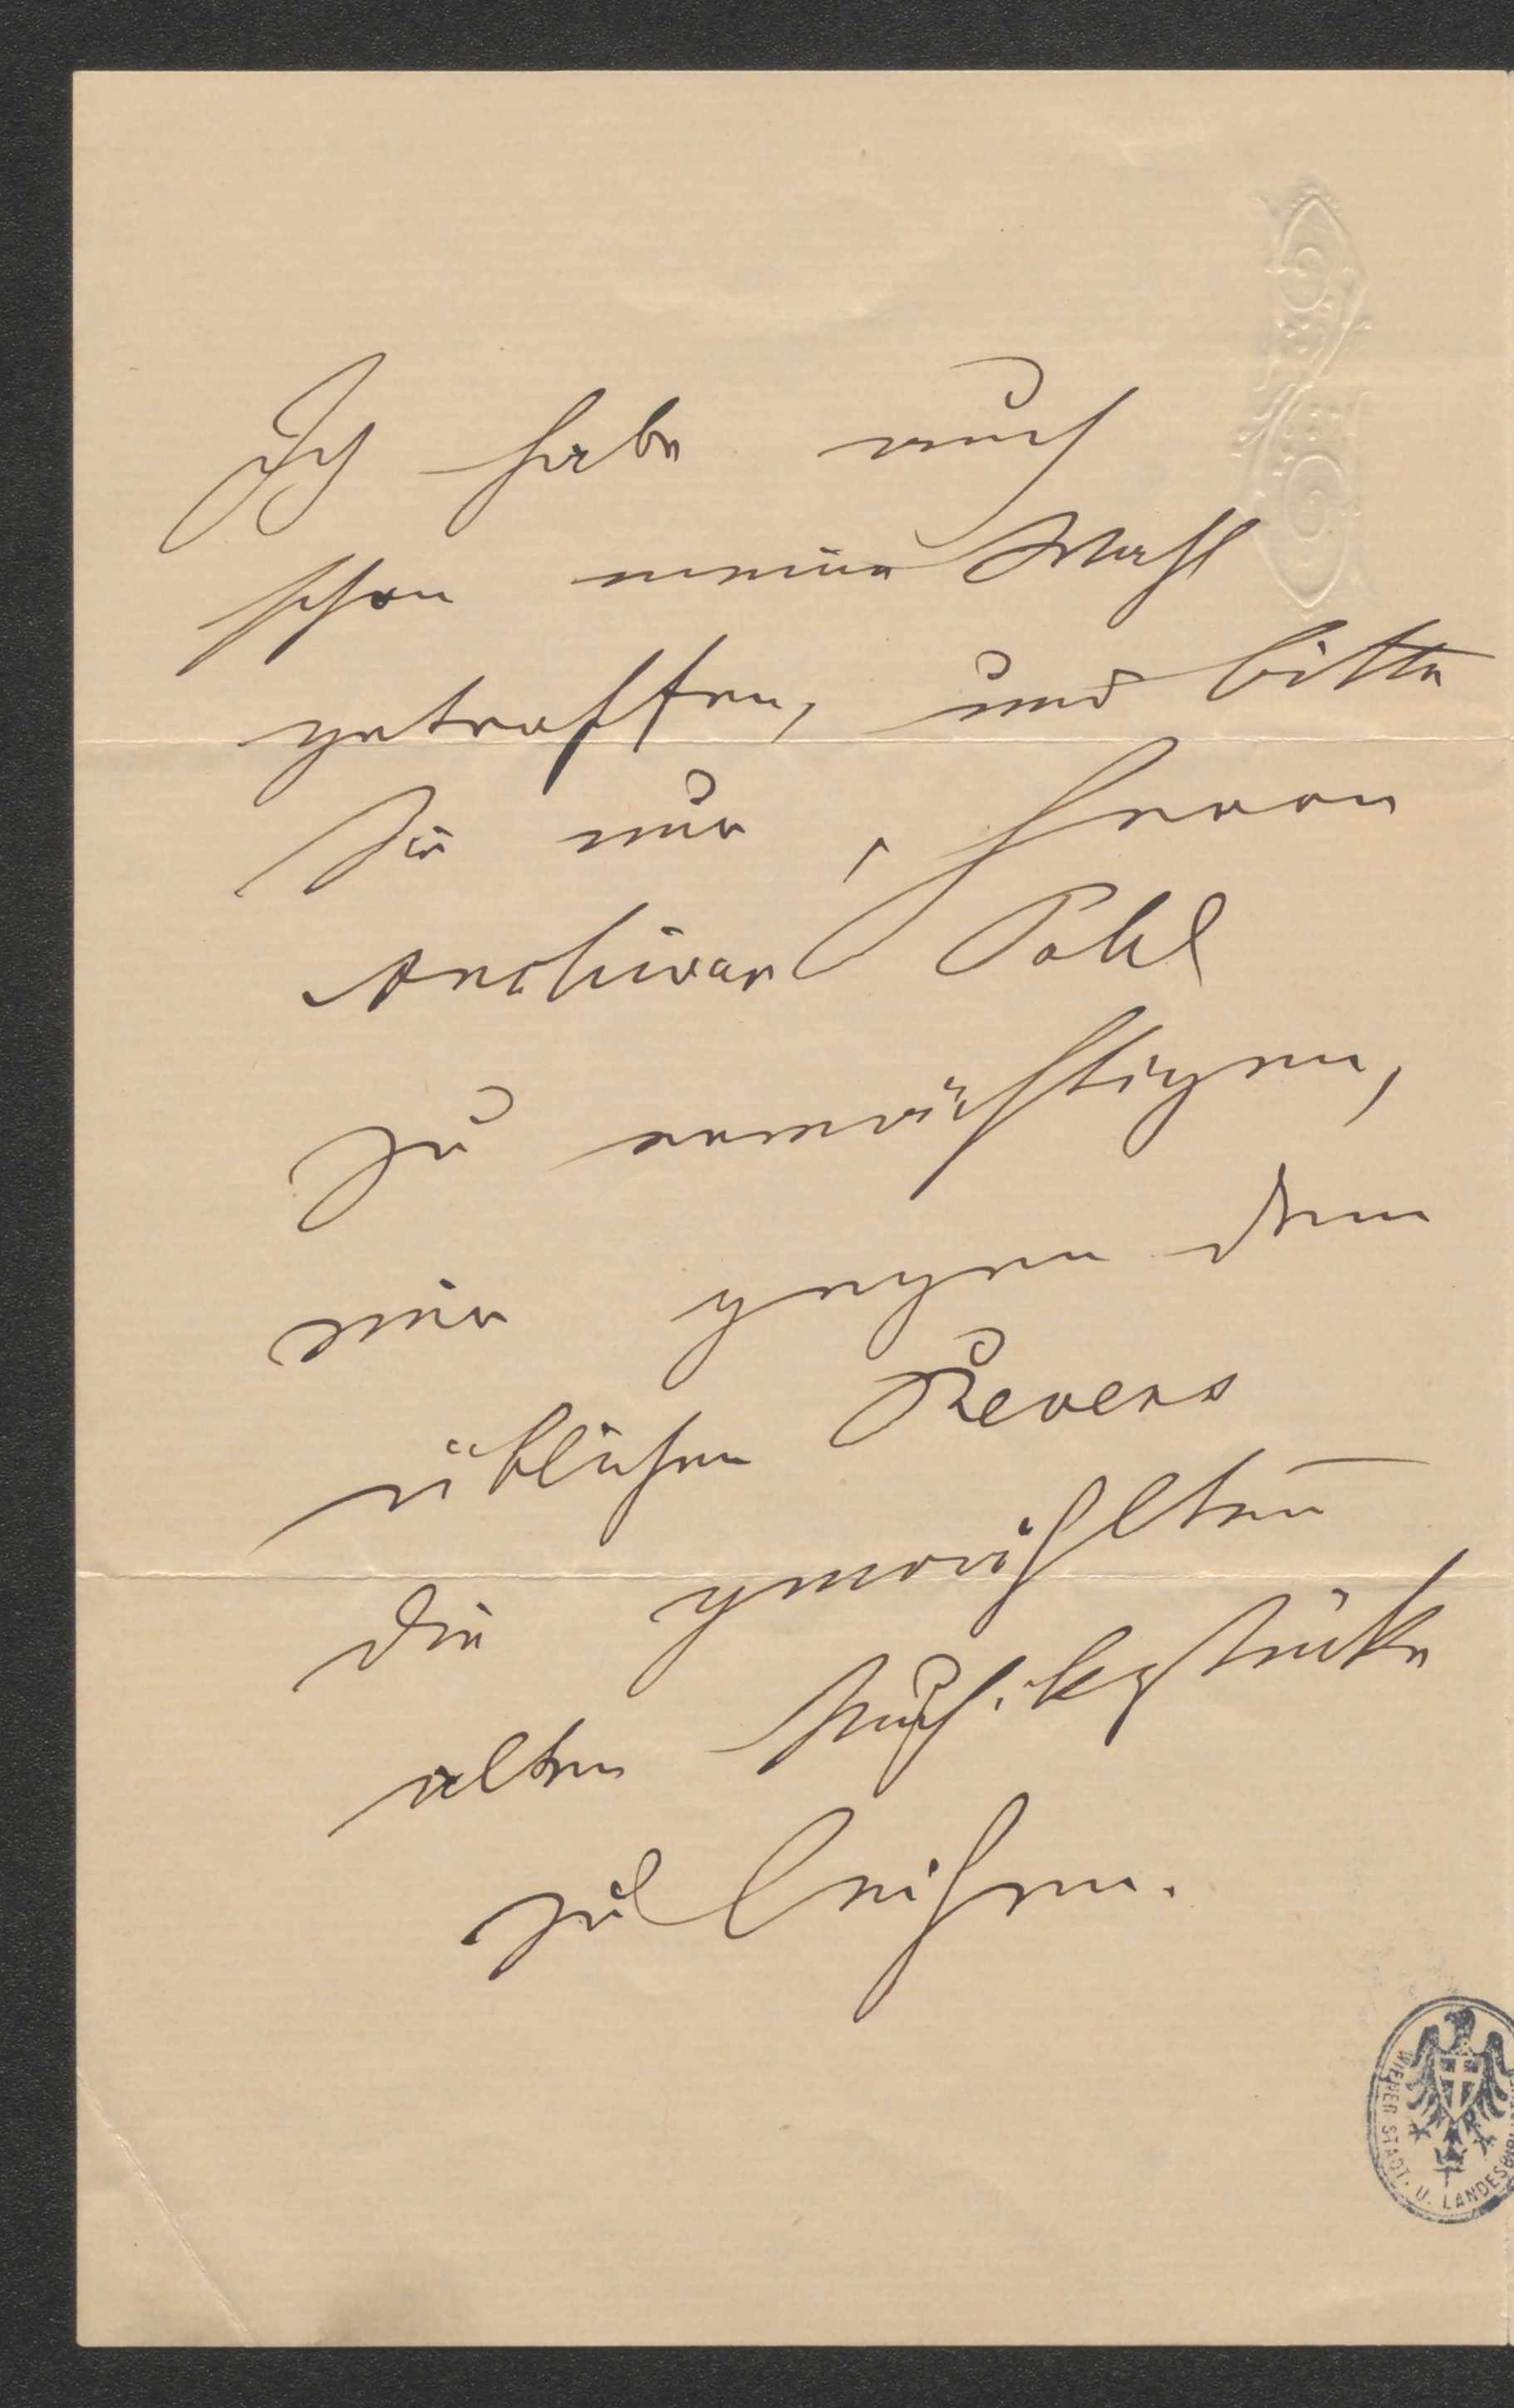 Ich habe auch
schon meine Wahl
getroffen, und bitte
Sie nur, Herrn
Archivar Pohl
zu ermächtigen,
mir gegen den
üblichen Revers
die gewählten
alten Musikstücke
zu leihen.
WIENER STADT- U. LANDESBIBL